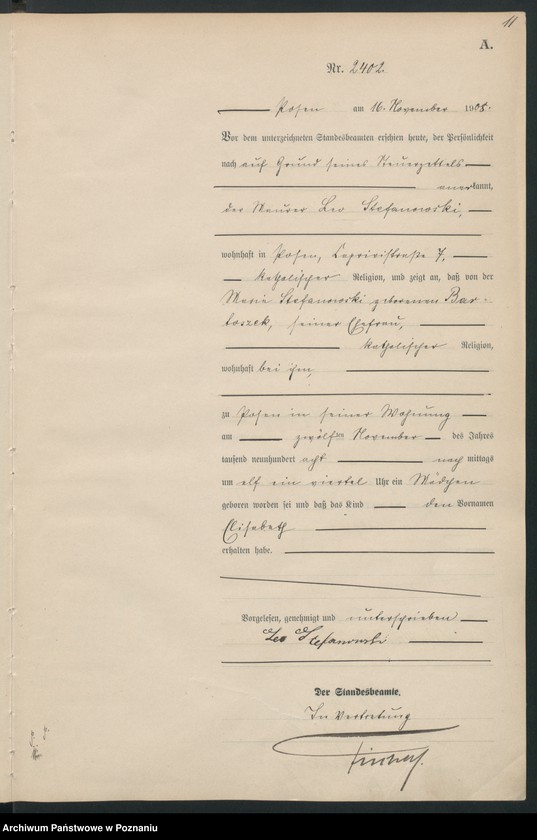 11
A.
Nr. 2402.
Posen am 16. November 1908.
Vor dem unterzeichneten Standesbeamten erschien heute, der Persönlichkeit
nach auf Grund seines Steuerzettels
anerkannt,
der Maurer Leo Stefanowski,
wohnhaft in Posen, Caprivistraße 7,
katholischer Religion, und zeigt an, daß von der
Maria Stefanowski geborenen Bar-
toszek, seiner Ehefrau,
katholischer Religion,
wohnhaft bei ihm,
zu Posen in seiner Wohnung
am zwölften November des Jahres
tausend neunhundert acht nach mittags
um elf ein viertel Uhr ein Mädchen
geboren worden sei und daß das Kind den Vornamen
Elisabeth
erhalten habe.
Vorgelesen, genehmigt und unterschrieben
Leo Stefanowski
Der Standesbeamte.
In Vertretung
Archiwum Państwowe w Poznaniu